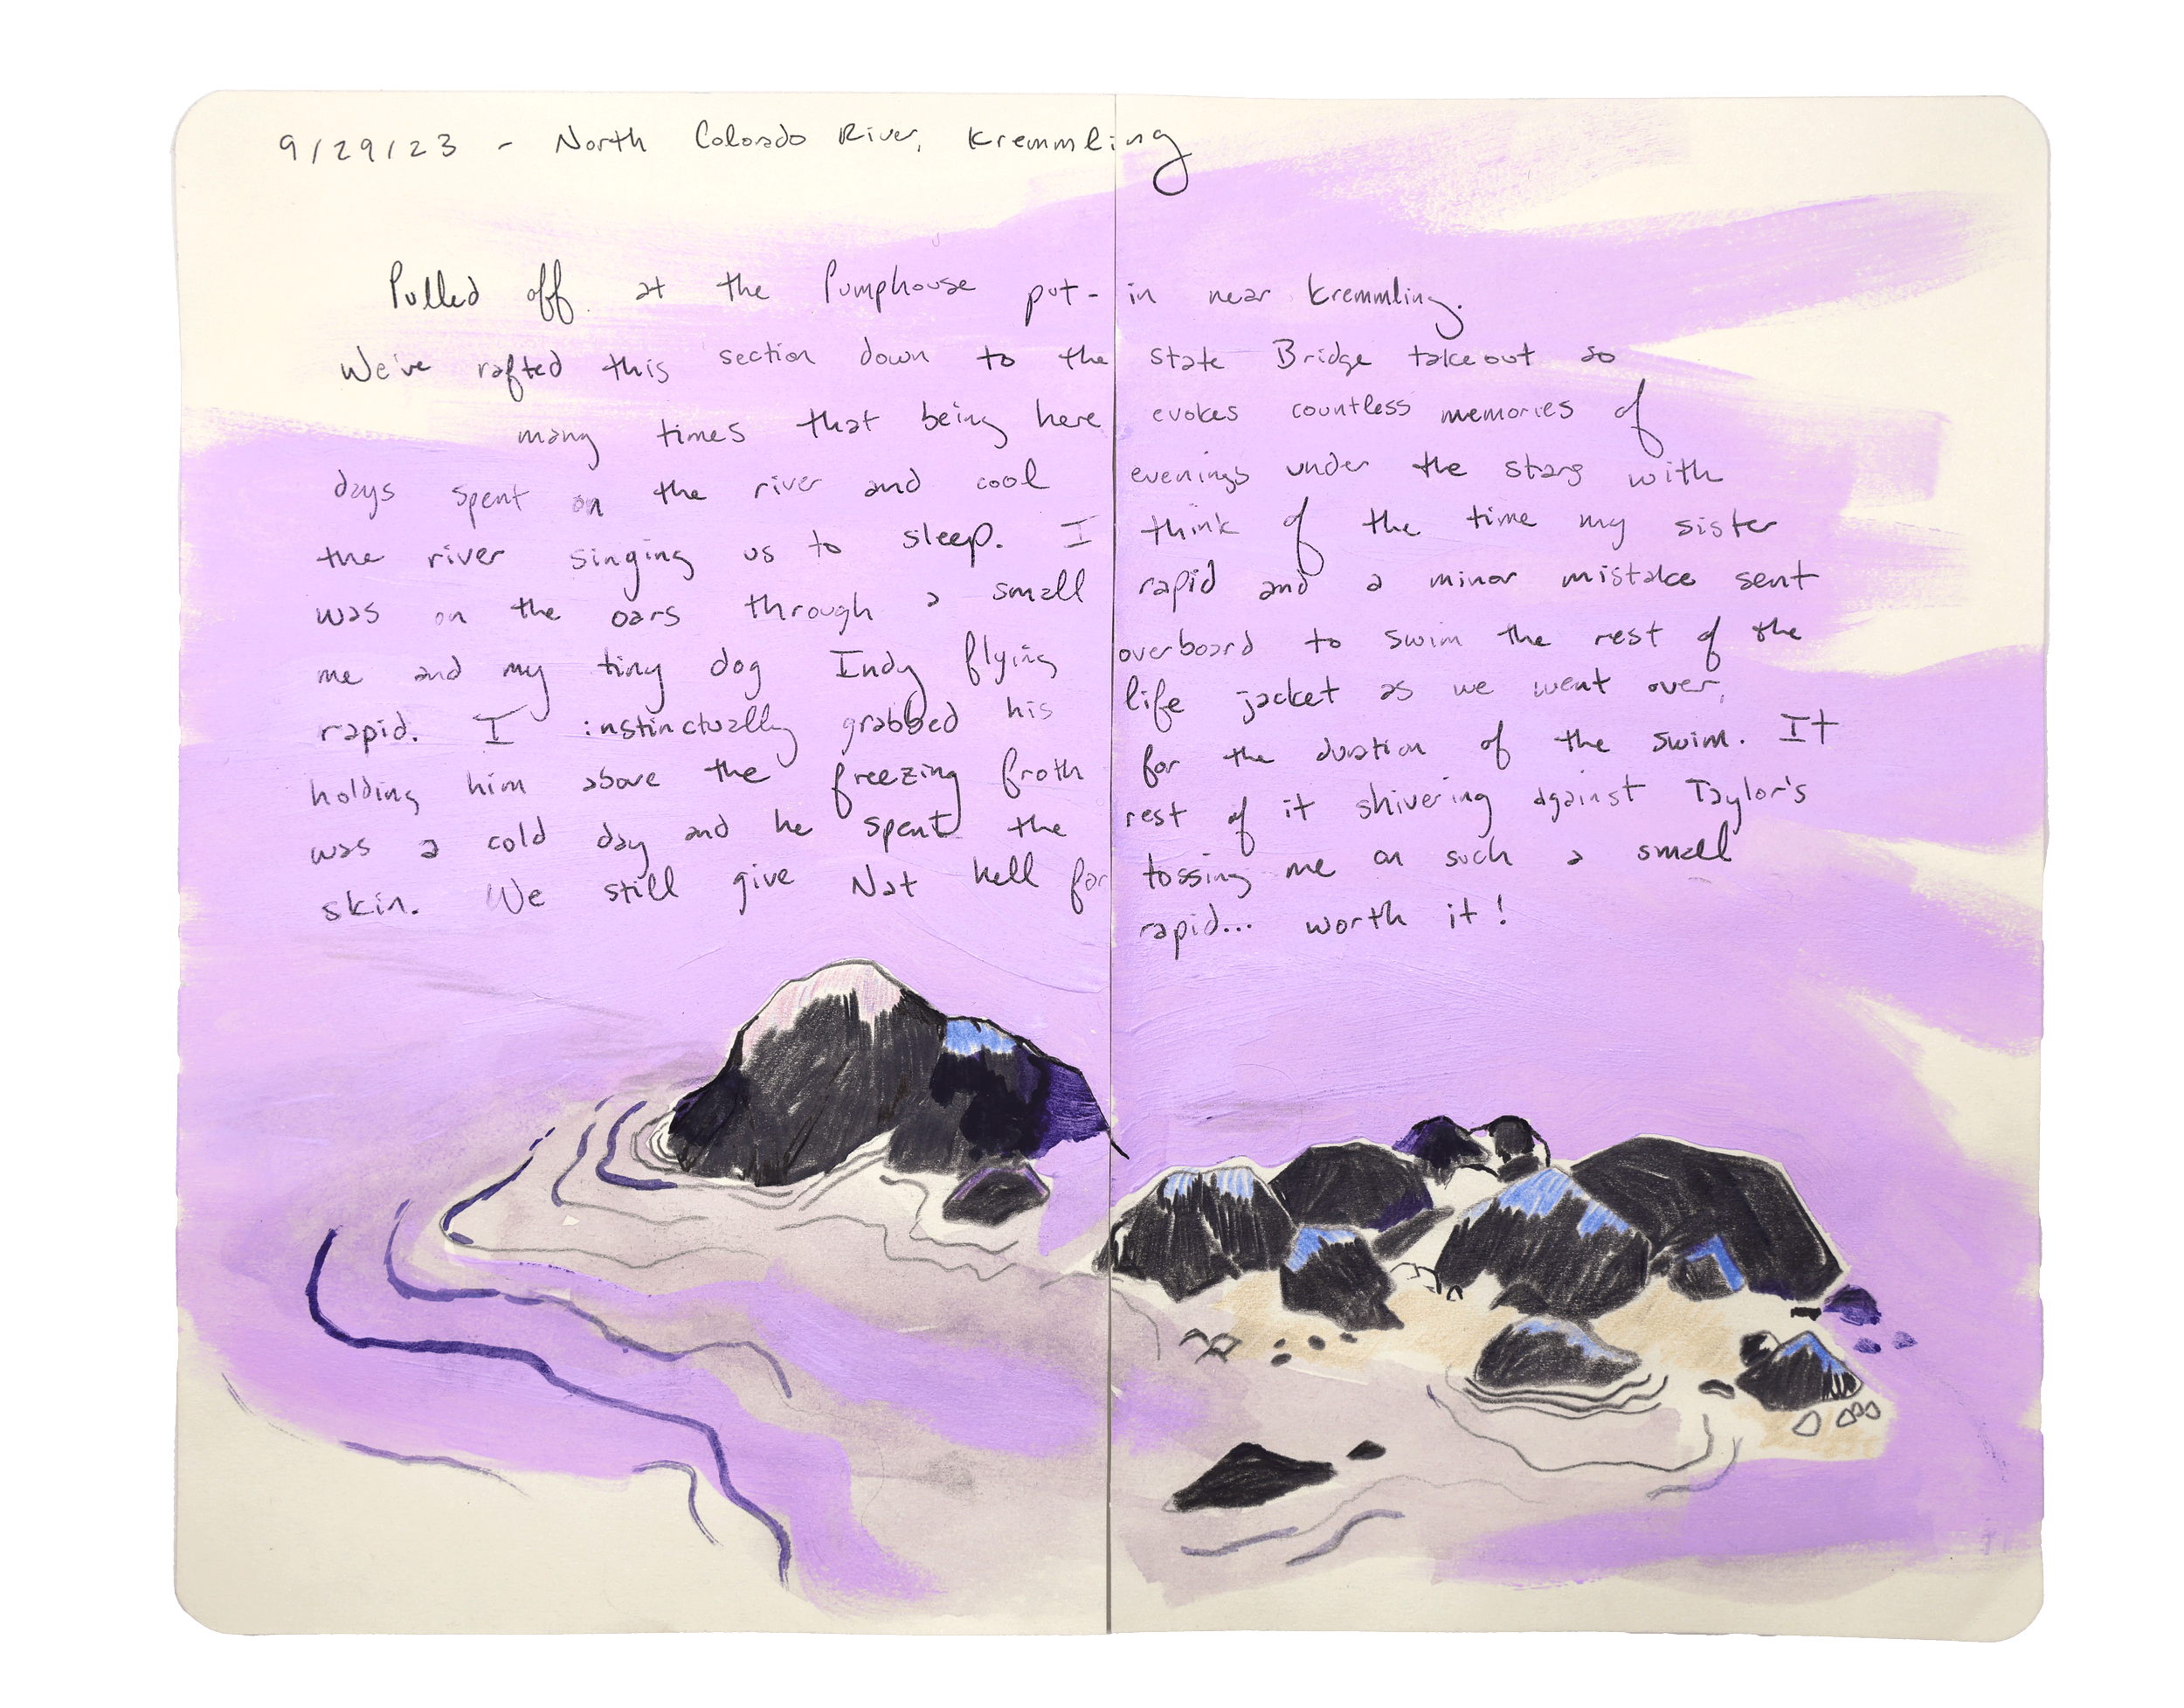 9/29/23 - North Colorado River, Kremmling
Pulled off at the Pumphouse put-in near Kremmling.
We've rafted this section down to the State Bridge takeout so
many times that being here evokes countless memories of
days spent on the river and cool evenings under the stars with
the river singing us to sleep. I think of the time my sister
was on the oars through a small rapid and a minor mistake sent
me and my tiny dog Indy flying overboard to swim the rest of the
rapid. I instinctually grabbed his life jacket as we went over,
holding him above the freezing froth for the duration of the swim. It
was a cold day and he spent the rest of it shivering against Taylor's
skin. We still give Nat hell for tossing me on such a small
rapid... worth it!